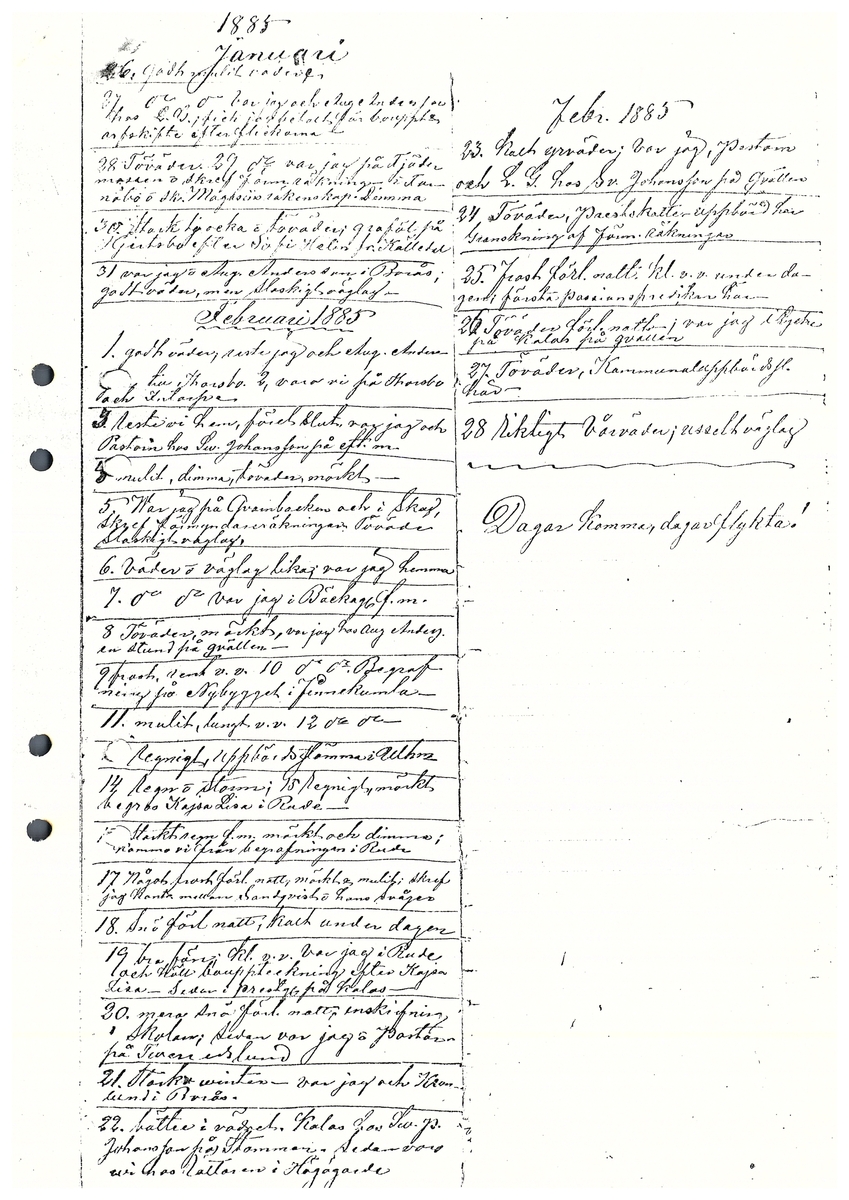 1885
Januari
26. godt mulit väder
27 dº dº var jag och Aug. Andersson
hos L. G., fick jag betalt för bouppt. o
arfskifte efter flickorna —
28 Töväder. 29 dº var jag på Fjäder
mossen o skref Förm. räkningar i
o skr. Magasin räkenskap.
30. Stark tjocka o töväder; graföl på
Hjertsbo efter Sofi Helin fr. Källedal
31 var jag o Aug. Andersson i Borås;
godt väder, men slaskigt väglag —
Februari 1885
1. godt väder, reste jag och Aug. Anders
till Thorsbo. 2, voro vi på Thorsbo
och
3. Reste vi hem, före slut, var jag och
Pastorn hos Sv. Johansson på eft. m.
4 mulit, dimma, töväder, mörkt —
5, War jag på Granbacken och i Skog,
skref Förmyndareräkningar, Töväder
Slaskigt väglag,
6. Väder o väglag lika; var jag hemma
7. dº dº var jag i Bäckag. f. m.
8 Töväder, mörkt, var jag hos Aug Anders.
en stund på qvällen —
9 frost, rent v. v. 10 dº dº. Begraf
ning på Nybygget i Finnekumla —
11. mulit, lungt v. v. 12 dº dº —
Regnigt, Uppbördsstämma i Ulhm
14, Regn o storm; 15 Regnigt, mörkt
begros Kajsa Lisa i Rude —
Starkt regn f. m. mörkt och dimma;
kommo vi från begrafningen i Rude
17 Något frost förl. natt, mörkt o mulit; skref
jag Kontr. mellan Sandqvist o hans svåger
18. Snö förl. natt; kalt under dagen
19 bra före; kl. v. v. Var jag i Rude
och höll bouppteckning efter Kajsa
Lisa — Sedan i prestg. på kalas —
20. mera snö förl. natt, inskrifning
i Skolan; sedan var jag o Pastorn
på Twenedslund
21. Starka winter — var jag och Kron-
lund i Borås.
22. bättre i vädret. Kalas hos Sw. P.
Johansson på Stommen. Sedan voro
wi hos Rättaren i Högagärde
Febr. 1885
23. Kalt yrväder; var jag, Pastorn
och L. G. hos Sv. Johansson på qvällen
24 Töväder, Prestskatter uppbörd här
Granskning af Förm. räkningar
25. Frost förl. natt. kl. v. v. under da-
gen; första passionspredikan här —
26 Töväder förl. natt —; var jag i
på Kalas på qvällen
27. Töväder, Kommunaluppbördsst.
här —
28 Riktigt Vårväder; usselt väglag
Dagar komma, dagar flykta!